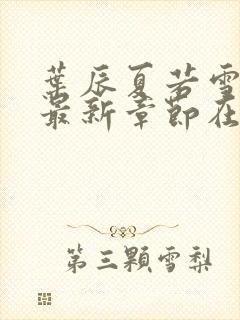 葉辰夏若雪
最新章節在
第三顆雪梨